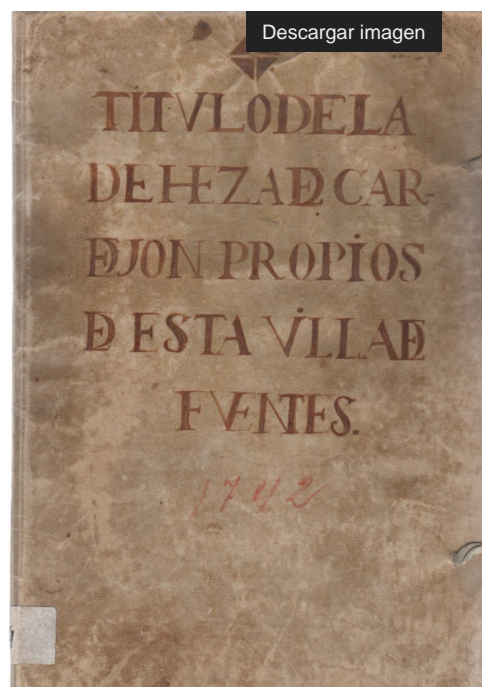 Descargar imagen
TITVLO DE LA
DEHEZA DE CAR-
DEJON PROPIOS
DE ESTA VILLA DE
FVENTES.
1742